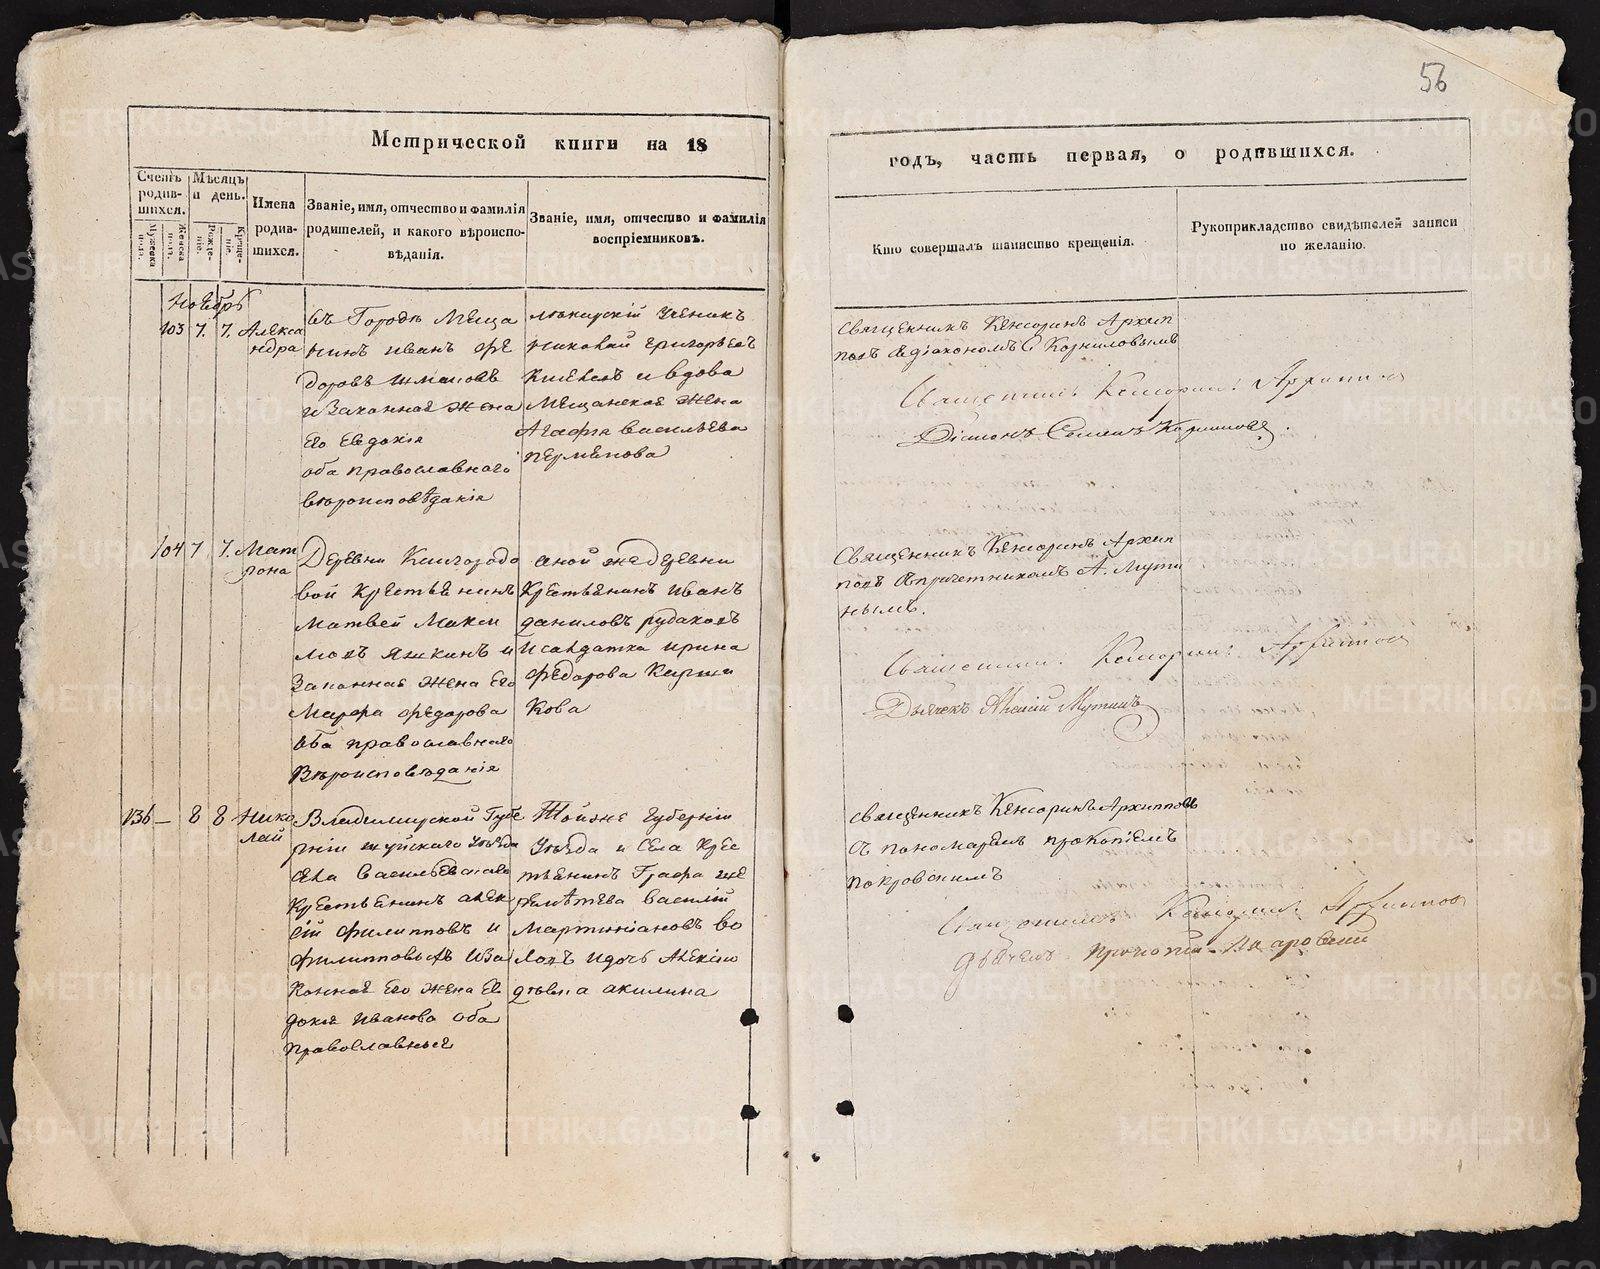 56
Метрической книги на 18
годъ, часть первая, о родившихся.
Счетъ родив-шихся.
Мужеска пола.
Женска пола.
Мѣсяцъ и день.
Рожде-нія.
Креще-нія.
Имена родив-шихся.
Званіе, имя, отчество и фамилія
родителей, и какого вѣроиспо-
вѣданія.
Званіе, имя, отчество и фамилія
воспріемниковъ.
Кто совершалъ таинство крещенія.
Рукоприкладство свидѣтелей записи
по желанію.
Ноябрь
103 7. 7. Алекса
ндра
Городѣ Меща
нинъ иванъ фе
доровъ
и Законная жена
его Евдокія
оба православнаго
вѣроисповѣданія
ученикъ
Николай григорьевъ
и вдова
Мещанская жена
Агафія васильева
Священникъ Кенсоринъ Архип
повъ съ діакономъ С Корниловымъ
Священникъ Кенсоринъ Архиповъ
Діаконъ Семенъ Корниловъ.
104 7 7. Мат
рона
Деревни
вой Крестьянинъ
Матвей Макси
мовъ и
Законная жена его
Марфа федорова
оба православнаго
Вѣроисповѣданія
оной же деревни
Крестьянинъ иванъ
даниловъ рудаковъ
и салдатка ирина
федорова
кова
Священникъ Кенсоринъ Архип
повъ съ причетникомъ А. Мути
нымъ.
Священникъ Кенсоринъ Архиповъ
Дьячекъ Алексій Мутинъ
136 — 8 8 Нико
лай
Владимирской Губе
рніи шуйскаго Уѣзда
села васильевскаго
Крестьянинъ алек
сій филипповъ и
филипповыхъ и За
конная его жена Ев
докія иванова оба
православные
Тойже губерніи
Уѣзда и села Крес
тьянинъ Графа ше
реметева василій
Мартиніановъ во
и дочь алексію
акилина
священникъ Кенсоринъ Архипповъ
съ пономаремъ прокопіемъ
покровскимъ
Священникъ Кенсоринъ Архиповъ
METRIKI.GASO-URAL.RU